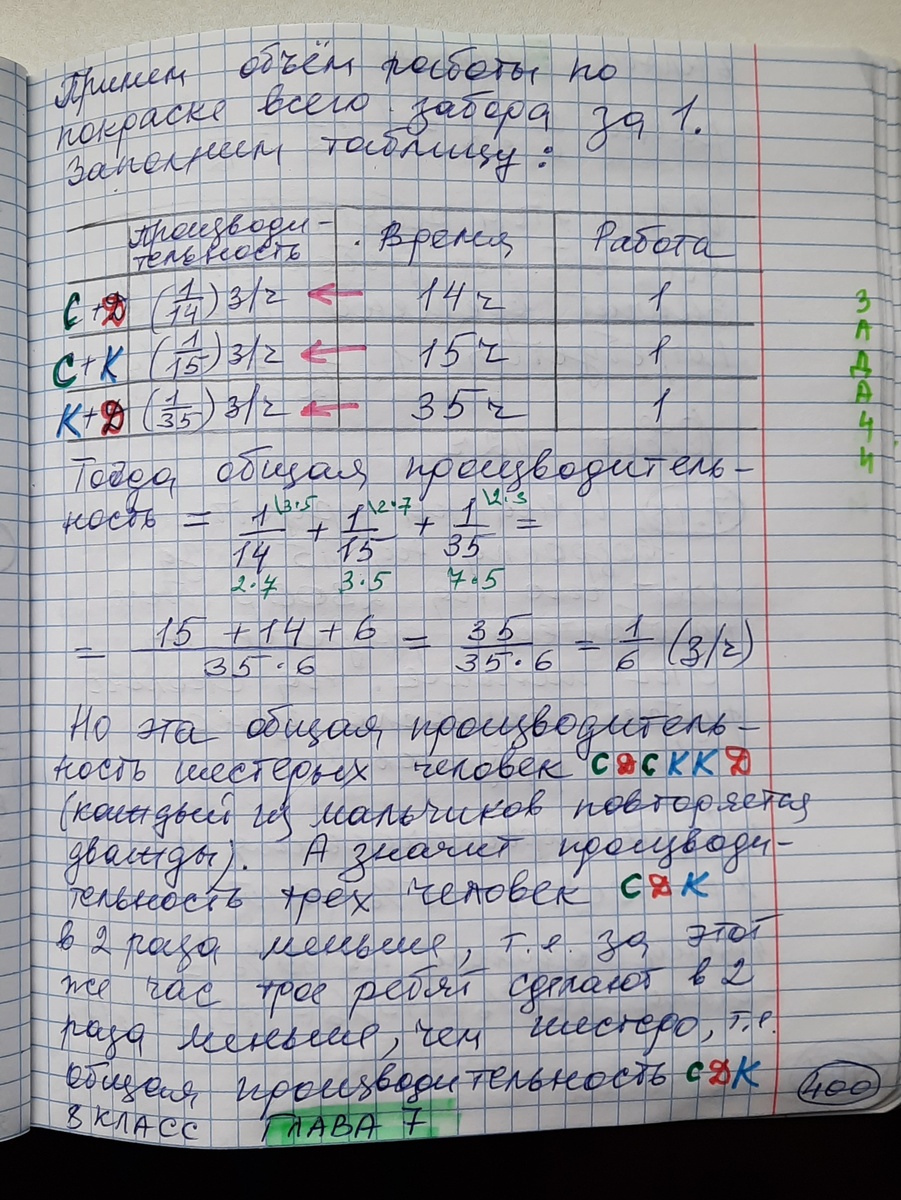 Примем объём работы по
покраске всего забора за 1.
Заполним таблицу:
Производи-
тельность
Время
Работа
С+Д (1/14) з/ч ← 14 ч 1
С+К (1/15) з/ч ← 15 ч 1
К+Д (1/35) з/ч ← 35 ч 1
Тогда общая производитель-
ность = 1/14 \3·5 + 1/15 \2·7 + 1/35 \2·3 =
2·7 3·5 7·5
= (15 + 14 + 6)/(35·6) = 35/(35·6) = 1/6 (з/ч)
Но эта общая производитель-
ность шестерых человек СДСККД
(каждый из мальчиков повторяется
дважды). А значит производи-
тельность трёх человек СДК
в 2 раза меньше, т.е. за этот
же час трое ребят сделают в 2
раза меньше, чем шестеро, т.е.
общая производительность СДК
8 КЛАСС ГЛАВА 7
400
ЗАДАЧИ